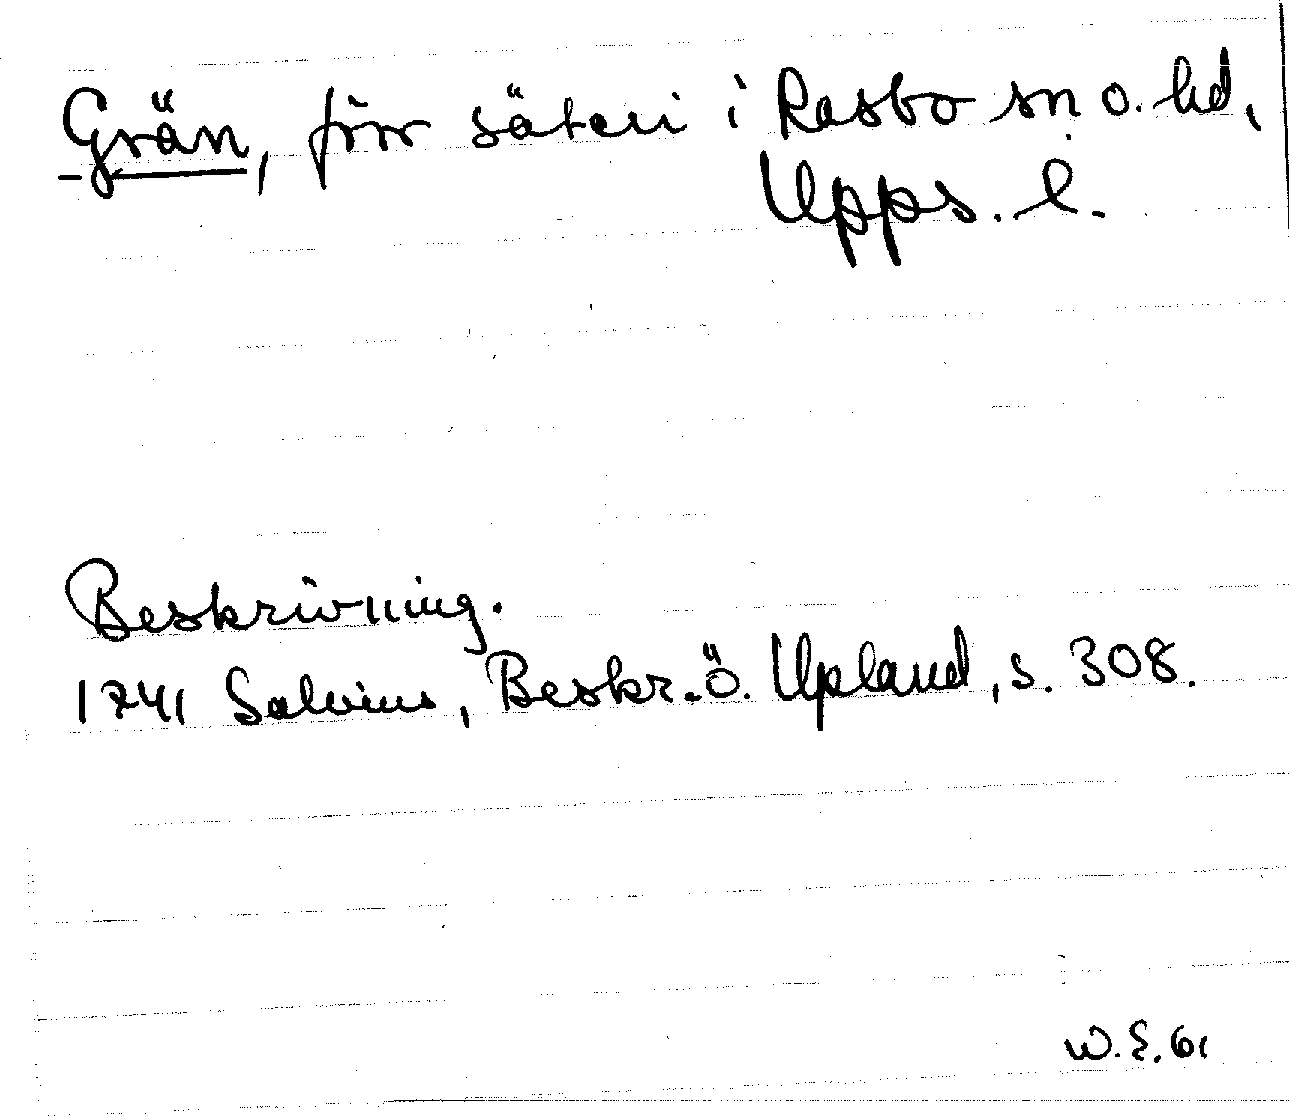 Grän, förr säteri i Rasbo sn o. hd,
Upps. l.
Beskrivning.
1741 Salvius, Beskr. ö. Upland, s. 308.
W.E. 61